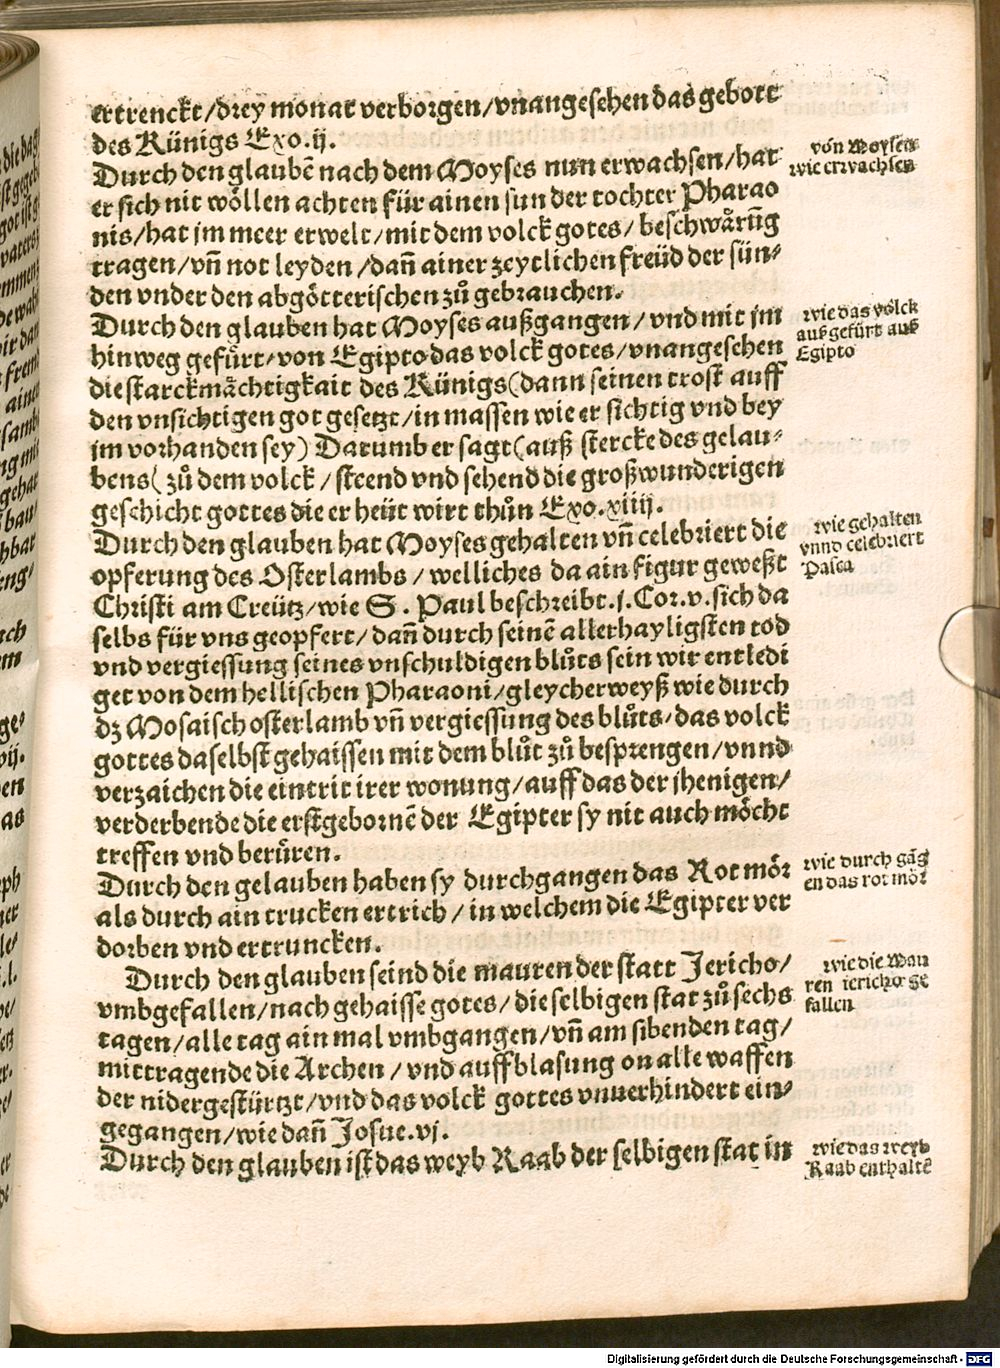 ertrenckt/drey monat verborgen/vnangesehen das gebott
des Künigs Exo.ij.
Durch den glaubē nach dem Moyses nun erwachsen/hat
er sich nit wöllen achten für ainen sun der tochter Pharao
nis/hat jm meer erwelt/mit dem volck gotes/beschwårūg
tragen/vñ not leyden/dañ ainer zeytlichen freüd der sün⸗
den vnder den abgötterischen zů gebrauchen.
Durch den glauben hat Moyses außgangen/vnd mit jm
hinweg gefürt/von Egipto das volck gotes/vnangesehen
die starckmåchtigkait des Künigs(dann seinen trost auff
den vnsichtigen got gesetzt/in massen wie er sichtig vnd bey
jm vorhanden sey) Darumb er sagt(auß stercke des gelau⸗
bens( zů dem volck/steend vnd sehend die großwunderigen
geschicht gottes die er heüt wirt thůn Exo.xiiij.
Durch den glauben hat Moyses gehalten vñ celebriert die
opferung des Osterlambs/welliches da ain figur geweßt
Christi am Creütz/wie S. Paul beschreibt.j.Cor.v.sich da
selbs für vns geopfert/dañ durch seinē allerhayligsten tod
vnd vergiessung seines vnschuldigen blůts sein wir entledi
get von dem hellischen Pharaoni/gleycherweyß wie durch
dz Mosaisch osterlamb vñ vergiessung des blůts/das volck
gottes daselbst gehaissen mit dem blůt zů besprengen/vnnd
verzaichen die eintrit irer wonung/auff das der jhenigen/
verderbende die erstgebornē der Egipter sy nit auch möcht
treffen vnd berüren.
Durch den gelauben haben sy durchgangen das Rot mör
als durch ain trucken ertrich/in welchem die Egipter ver
dorben vnd ertruncken.
Durch den glauben seind die mauren der statt Jericho/
vmbgefallen/nach gehaisse gotes/die selbigen stat zů sechs
tagen/alle tag ain mal vmbgangen/vñ am sibenden tag/
mittragende die Archen/vnd auffblasung on alle waffen
der nidergestürtzt/vnd das volck gottes vnuerhindert ein⸗
gegangen/wie dañ Josue.vj.
Durch den glauben ist das weyb Raab der selbigen stat in
von Moysen
wie erwachsen
wie das volck
auß gefürt auß
Egipto
wie gehalten
vnnd celebriert
Pasca
wie durch gāg
en das rot mör
wie die Mau
ren iericho ge
fallen
wie das weyb
Raab enthaltē
Digitalisierung gefördert durch die Deutsche Forschungsgemeinschaft - DFG